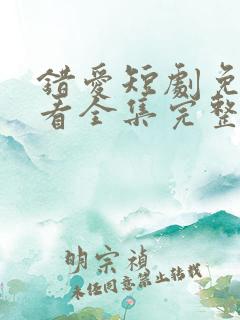 錯愛短劇免
看全集完整
明宗禎
未经同意禁止转载